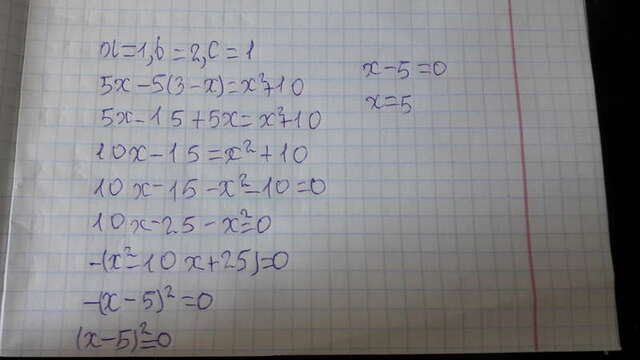 a=1, b=2, c=1
5x-5(3-x)=x²+10
5x-15+5x=x²+10
10x-15=x²+10
10x-15-x²-10=0
10x-25-x²=0
-(x²-10x+25)=0
-(x-5)²=0
(x-5)²=0
x-5=0
x=5